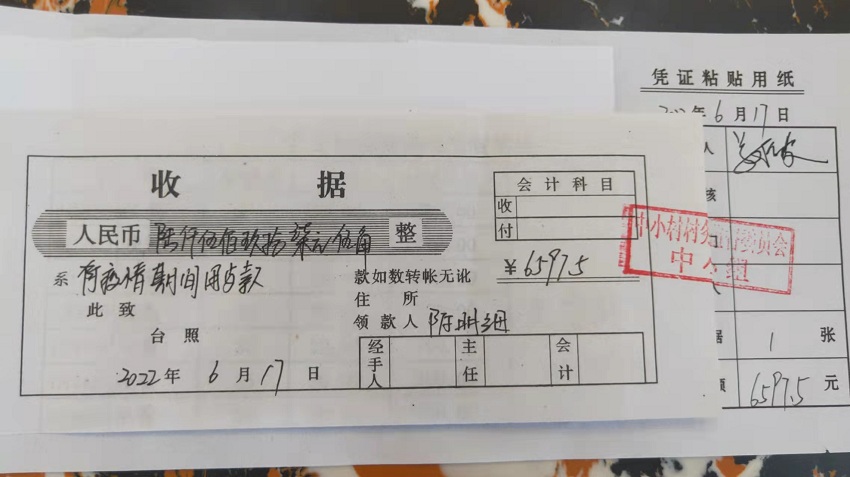 凭证粘贴用纸
年6月17日
人
核
收 据
会计科目
收
付
人民币 陆仟伍佰玖拾柒元伍角 整
¥6597.5
系 有疫情期间用
款如数转帐无讹
此致
住所
台照
领款人 陈
经手人 主任 会计
2022年6月17日
中小村村务监督委员会
据 1 张
额 6597.5 元